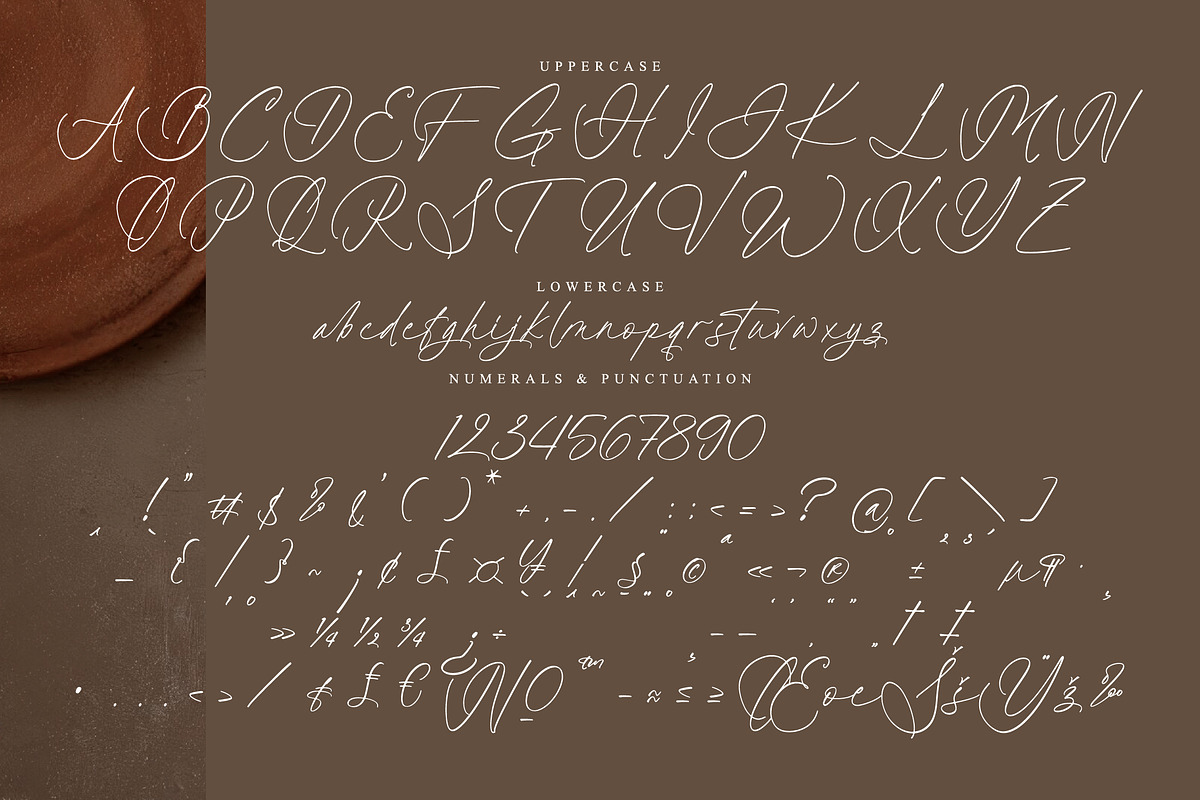 UPPERCASE
A B C D E F G H I J K L M N
O P Q R S T U V W X Y Z
LOWERCASE
abcdefghijklmnopqrstuvwxyz
NUMERALS & PUNCTUATION
1234567890
! " # $ % & ' ( ) * + , - . / : ; < = > ? @ [ \ ]
_ { | } ~ ¡ ¢ £ ¤ ¥ ¦ § © « ¬ ® ± µ ¶ ·
» ¼ ½ ¾ ¿ ÷ – — † ‡
• . . . < > / ¢ £ € № ™ − ≈ ≤ ≥ Œ œ Š š Ÿ ž ‰